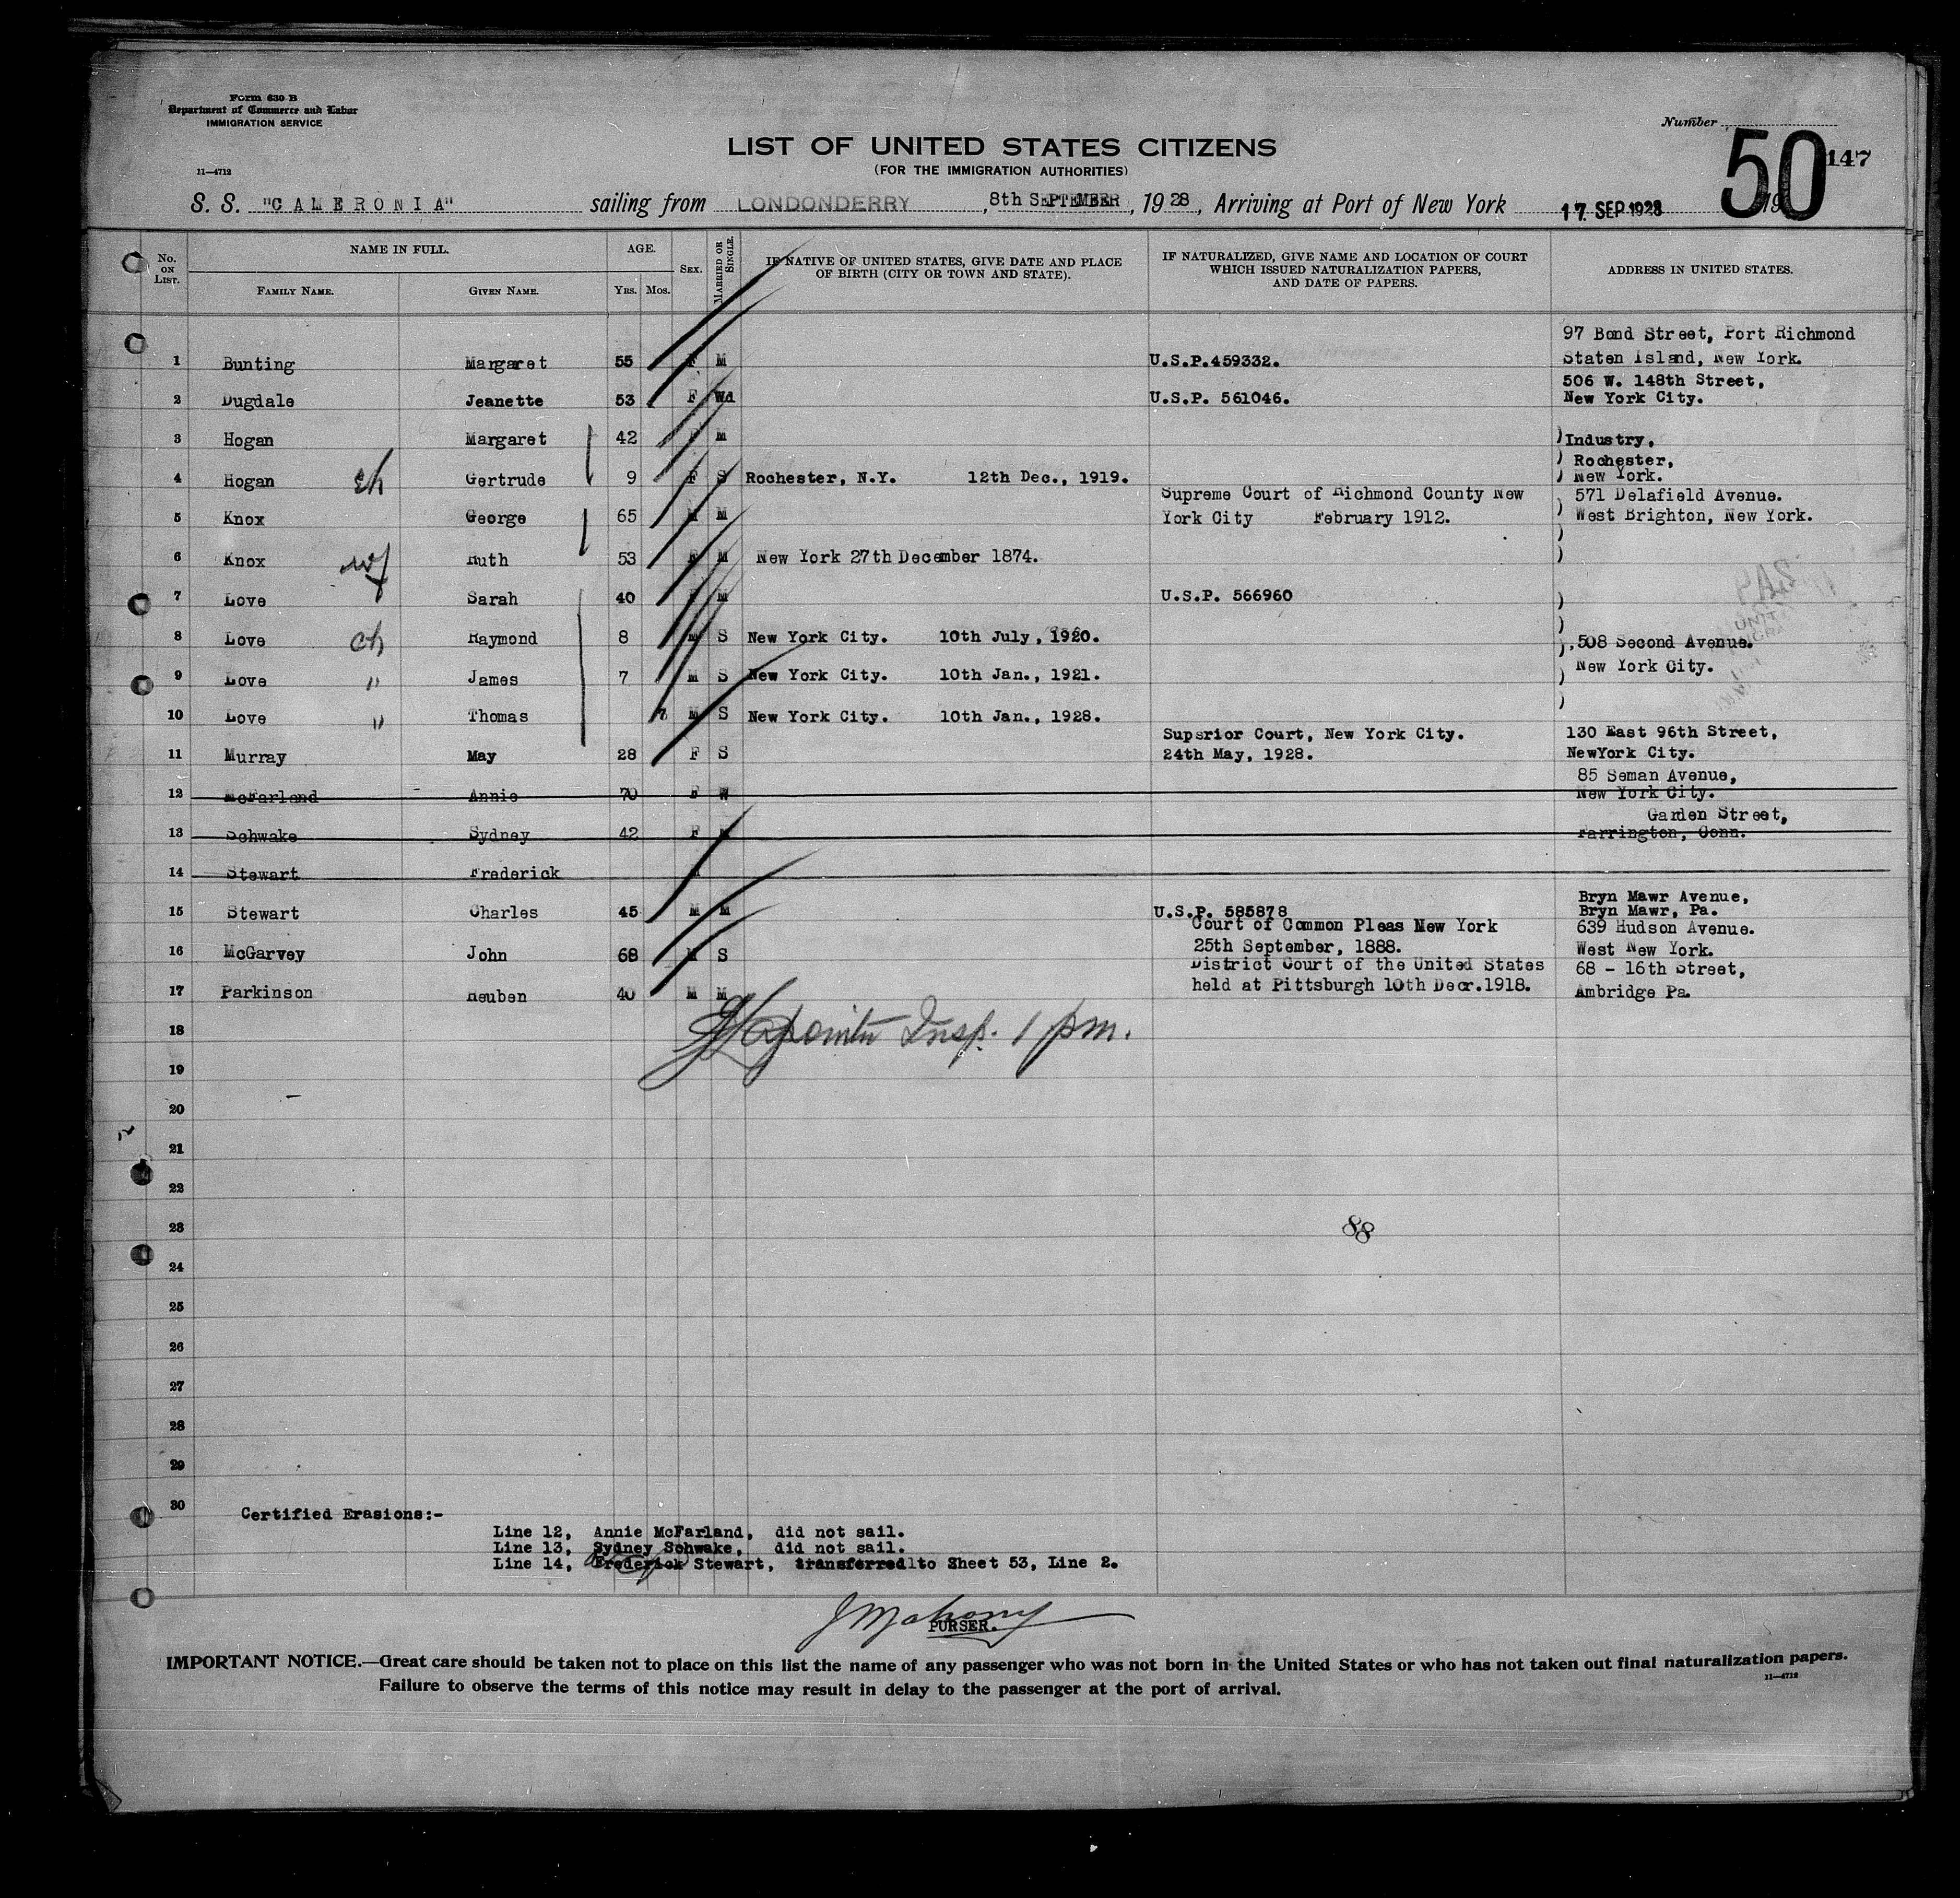 Form 630 B
Department of Commerce and Labor
IMMIGRATION SERVICE
11—4712
Number
50
147
LIST OF UNITED STATES CITIZENS
(FOR THE IMMIGRATION AUTHORITIES)
S. S. "CAMERONIA" sailing from LONDONDERRY, 8th SEPTEMBER, 1928, Arriving at Port of New York 17 SEP 1928 19
No. ON LIST.
NAME IN FULL.
FAMILY NAME.
GIVEN NAME.
AGE.
YRS. MOS.
SEX.
MARRIED OR SINGLE.
IF NATIVE OF UNITED STATES, GIVE DATE AND PLACE OF BIRTH (CITY OR TOWN AND STATE).
IF NATURALIZED, GIVE NAME AND LOCATION OF COURT WHICH ISSUED NATURALIZATION PAPERS, AND DATE OF PAPERS.
ADDRESS IN UNITED STATES.
1 Bunting Margaret 55 F M U.S.P.459332. 97 Bond Street, Port Richmond Staten Island, New York.
2 Dugdale Jeanette 53 F Wd U.S.P. 561046. 506 W. 148th Street, New York City.
3 Hogan Margaret 42 F M ) Industry,
4 Hogan ch Gertrude 9 F S Rochester, N.Y. 12th Dec., 1919. ) Rochester, ) New York.
5 Knox George 65 M M Supreme Court of Richmond County New York City February 1912. 571 Delafield Avenue. ) West Brighton, New York.
6 Knox wf Ruth 53 F M New York 27th December 1874. )
7 Love Sarah 40 F M U.S.P. 566960 )
8 Love ch Raymond 8 M S New York City. 10th July, 1920. ) 508 Second Avenue.
9 Love " James 7 M S New York City. 10th Jan., 1921. ) New York City.
10 Love " Thomas 7 M S New York City. 10th Jan., 1928. )
11 Murray May 28 F S Superior Court, New York City. 24th May, 1928. 130 East 96th Street, NewYork City.
12 McFarland Annie 70 F W 85 Seman Avenue, New York City.
13 Schwake Sydney 42 F M Garden Street, Farrington, Conn.
14 Stewart Frederick
15 Stewart Charles 45 M M U.S.P. 585878 Bryn Mawr Avenue, Bryn Mawr, Pa.
16 McGarvey John 68 M S Court of Common Pleas New York 25th September, 1888. 639 Hudson Avenue. West New York.
17 Parkinson Reuben 40 M M District Court of the United States held at Pittsburgh 10th Decr.1918. 68 - 16th Street, Ambridge Pa.
18
Insp. 1 pm.
19
20
21
22
23
88
24
25
26
27
28
29
30
Certified Erasions:-
Line 12, Annie McFarland, did not sail.
Line 13, Sydney Schwake, did not sail.
Line 14, Frederick Stewart, transferred to Sheet 53, Line 2.
J Mahony
PURSER.
IMPORTANT NOTICE.—Great care should be taken not to place on this list the name of any passenger who was not born in the United States or who has not taken out final naturalization papers.
Failure to observe the terms of this notice may result in delay to the passenger at the port of arrival.
11—4712